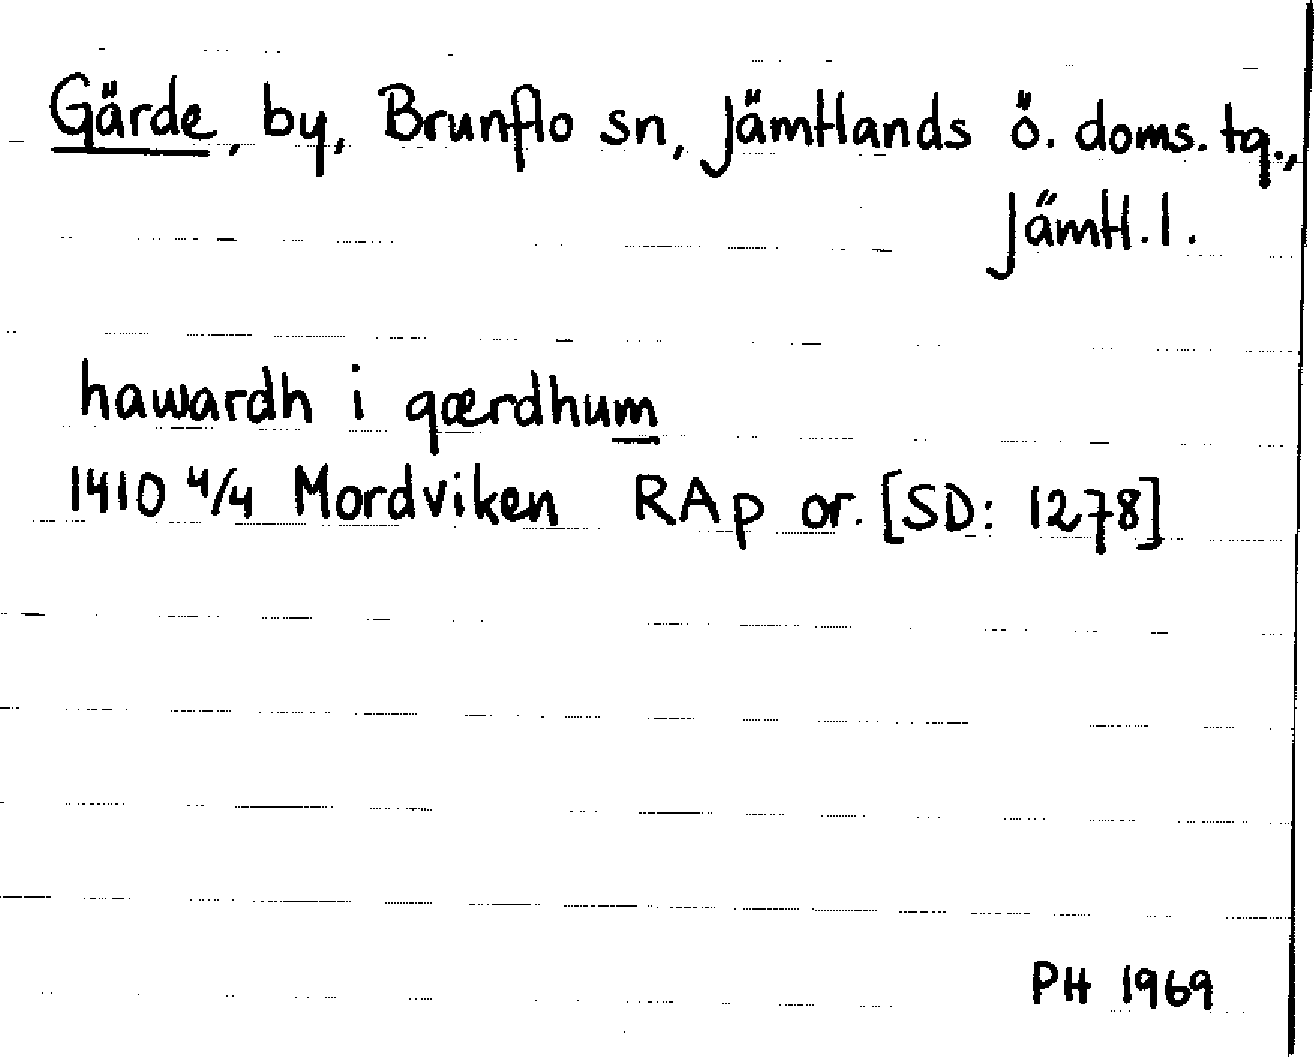 Gärde, by, Brunflo sn, Jämtlands ö. doms. tg.,
Jämtl. l.
hawardh i gærdhum
1410 4/4 Mordviken RAp or. [SD: 1278]
PH 1969